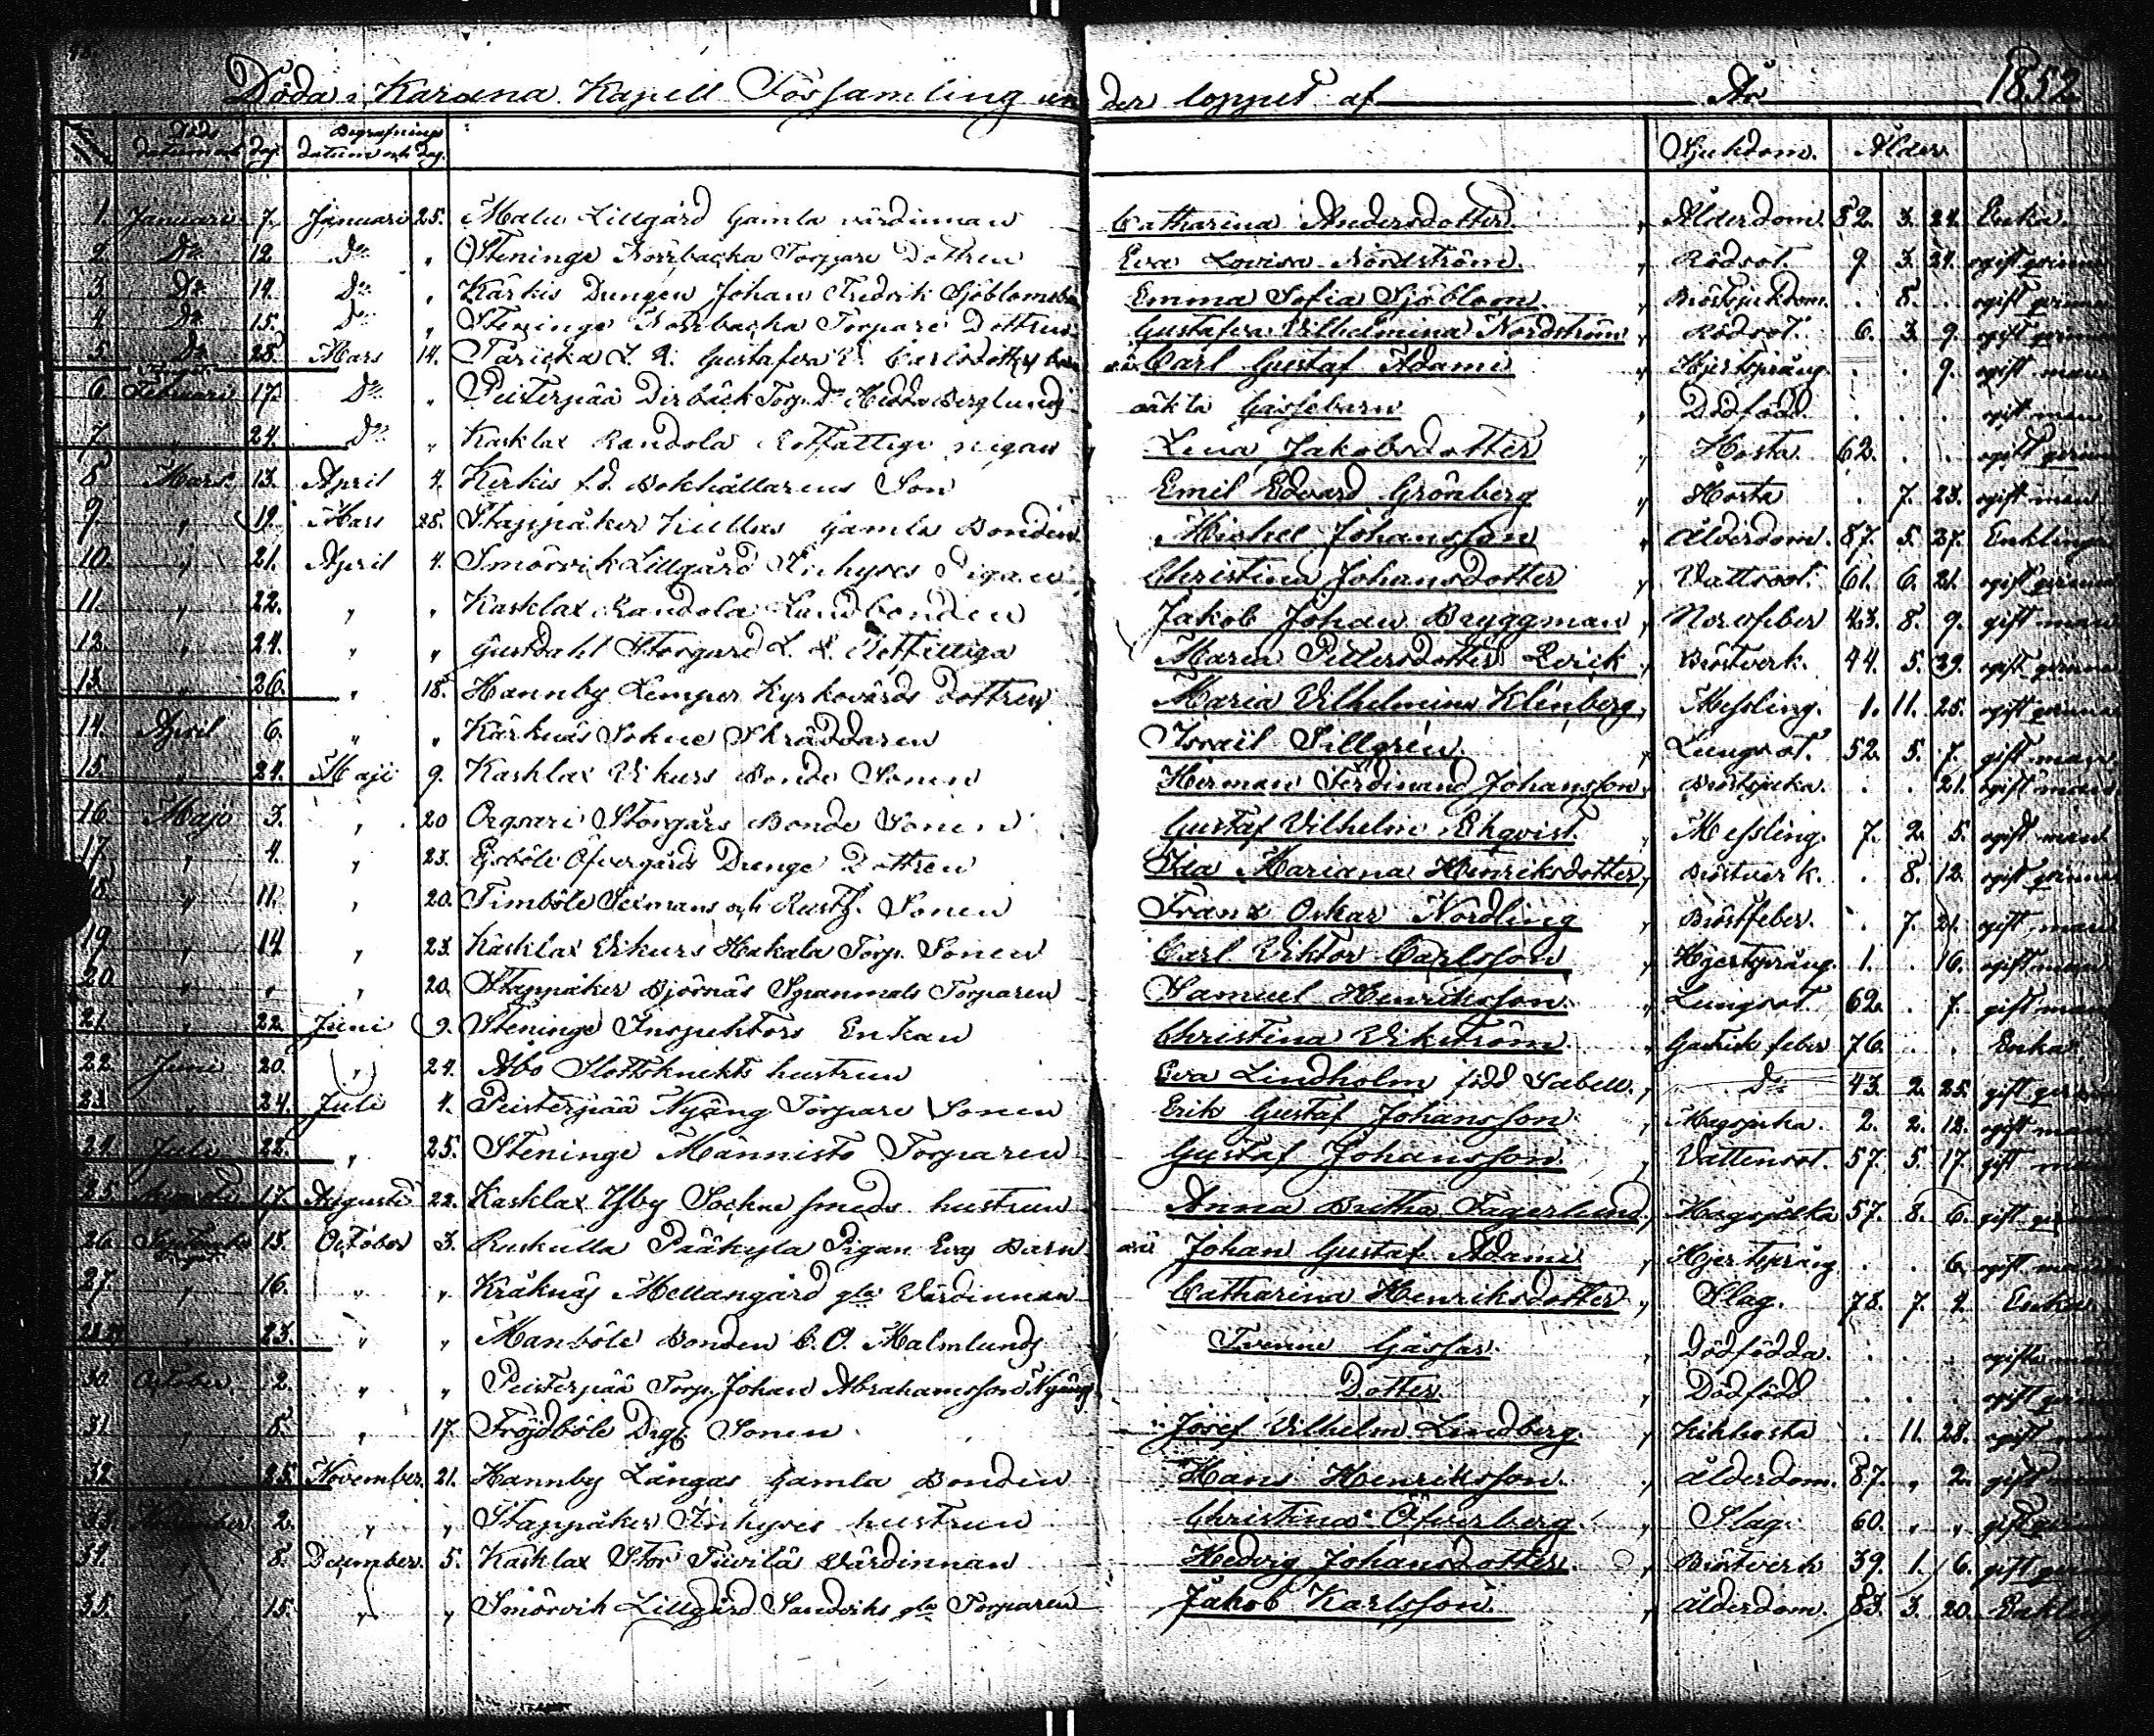 Döda i Karuna Kapell Församling under loppet af År 1852
Död datum och dag. Begrafnings datum och dag. Sjukdom. Ålder
1. Januari 7. Januari 25. Malu Lillgård Gamla värdinnan Catharina Andersdotter. Ålderdom. 82. 3. 24. Enka.
2. Do 12 Do " Steninge Norrbacka Torpare Dottren Eva Lovisa Nordström. Rödsot. 9 3. 24. ogift qvinna
3. Do 14. Do " Kärkis Drengen Johan Fredrik Sjöbloms Emma Sofia Sjöblom. Bröstsjukdom. . 8. . ogift qvinna
4. Do 15. Do " Steninge Norrbacka Torpare Dottren Gustafva Vilhelmina Nordström Rödsot. 6. 3. 9. ogift qvinna
5. Do 28. Mars 14. L. Gustafva Carlsdotters barn oäkta Carl Gustaf Adami Hjertsprång. . . 9. ogift man
6. Februari 17. Do " Peisterpää Torp. Dr Hedda Berglunds oäkta Gossebarn Dödfödd. . . . ogift man
7. " 24. Do " Kasklax Randola Rotfattige pigan Lena Jakobsdotter Hosta. 62. . . ogift qvinna
8 Mars. 13. April 4. Kerkis f.d. Bokhållarens Son Emil Edvard Grönberg Hosta . 7. 23. ogift man
9. " 19. Mars 28. Stappåker Gamla Bonden Michel Johansson Ålderdom. 87. 5. 27. Enkling
10. " 21. April 4. Smörvik Lillgård Inhyses Pigan Christina Johansdotter Vattsot. 61. 6. 21. ogift qvinna
11. " 22. " " Kasklax Randola Landbonden Jakob Johan Bryggman Nervfeber 43. 8. 9. gift man
12. " 24. " " Gusdahl Storgård Rotfattiga Maria Pettersdotter Bröstverk. 44. 5. 29. ogift qvinna
13. " 26. " 18. Hannby Lemper Kyrkovärds Dottren Maria Vilhelmina Klinberg Messling. 1. 11. 25. ogift qvinna
14. April 6. " " Kärknäs Sokne Skräddaren Israil Sillgrén. Lungsot. 52. 5. 7. gift man
15. " 24. Maji 9. Kasklax Vikurs Bonde Sonen Herman Ferdinand Johansson Bröstsjuka. . . 21. ogift man
16. Maji 3. " 20 Storgårs Bonde Sonen Gustaf Vilhelm Ekqvist. Messling. 7. 2. 5. ogift man
17. " 4. " 23. Ejsböle Öfvergårds Drenge Dottren Ida Mariana Henriksdotter Bröstverk. . 8. 12. ogift qvinna
18. " 11. " 20. Timböle Sexmans och Rustf. Sonen Franz Oskar Nordling Bröstfeber. . 7. 21. ogift man
19. " 14. " 23. Kasklax Vikurs Hakala Torp. Sonen Carl Viktor Carlsson Hjertsprång. 1. . 16. ogift man
20. " " " 20. Stappåker Björnäs Torparen Samuel Henriksson. Lungsot. 62. . 7. gift man
21. " 22. Juni 9. Steninge Inspektors Enkan Christina Vikström. Gastrisk feber 76. . . Enka
22. Juni 20. " 24. Åbo Slottsknekts hustrun Eva Lindholm född Sabell. Do 43. 2. 25. gift qvinna
23. " 24. Juli 4. Peisterpää Nyäng Torpare Sonen Erik Gustaf Johansson. Magsjuka. 2. 2. 12. ogift man
24. Juli 22. " 25. Steninge Männistö Torparen Gustaf Johansson. Vattensot. 57. 5. 17. gift man
25. Augusti 17. Augusti 22. Kasklax Ysby Sockne smeds hustrun Anna Britha Fagerlund Magsjuka 57. 8. 6. gift qvinna
26. September 13. October 3. Ruskulla Pääkyla Pigan Barn Johan Gustaf Adami Hjertsprång . . 6. ogift man
27. " 16. " " Kråknäs Mellangård gla Värdinnan Catharina Henriksdotter Slag. 78. 7. 4 Enka
28.29. " 23. " " Manböle Bonden C.O. Malmlunds Tvenne Gåssar. Dödfödda. . . . ogifta män
30. October 2. " " Peisterpää Torp. Johan Abrahamsson Nyängs Dotter. Dödfödd . . . ogift qvinna
31. " 8. " 17. Fröjdböle Drgs Sonen Josef Vilhelm Lindberg. Kikhosta . 11. 28. ogift man
32. " 25. November. 21. Hannby Långas Gamla Bonden Hans Henriksson. ålderdom. 87. " 2. gift man
33. November 2. " " Stappåker Inhyses hustrun Christina Öfverberg. Slag. 60. " " gift qvinna
34. " 8. December. 5. Kasklax Stor Tuvila Värdinnan Hedvig Johansdotter. Bröstverk 39. 1. 6. gift qvinna
35. " 15. " " Smörvik Lillgård Sandviks gla Torparen Jakob Karlsson. ålderdom. 83. 3. 20. Enkling